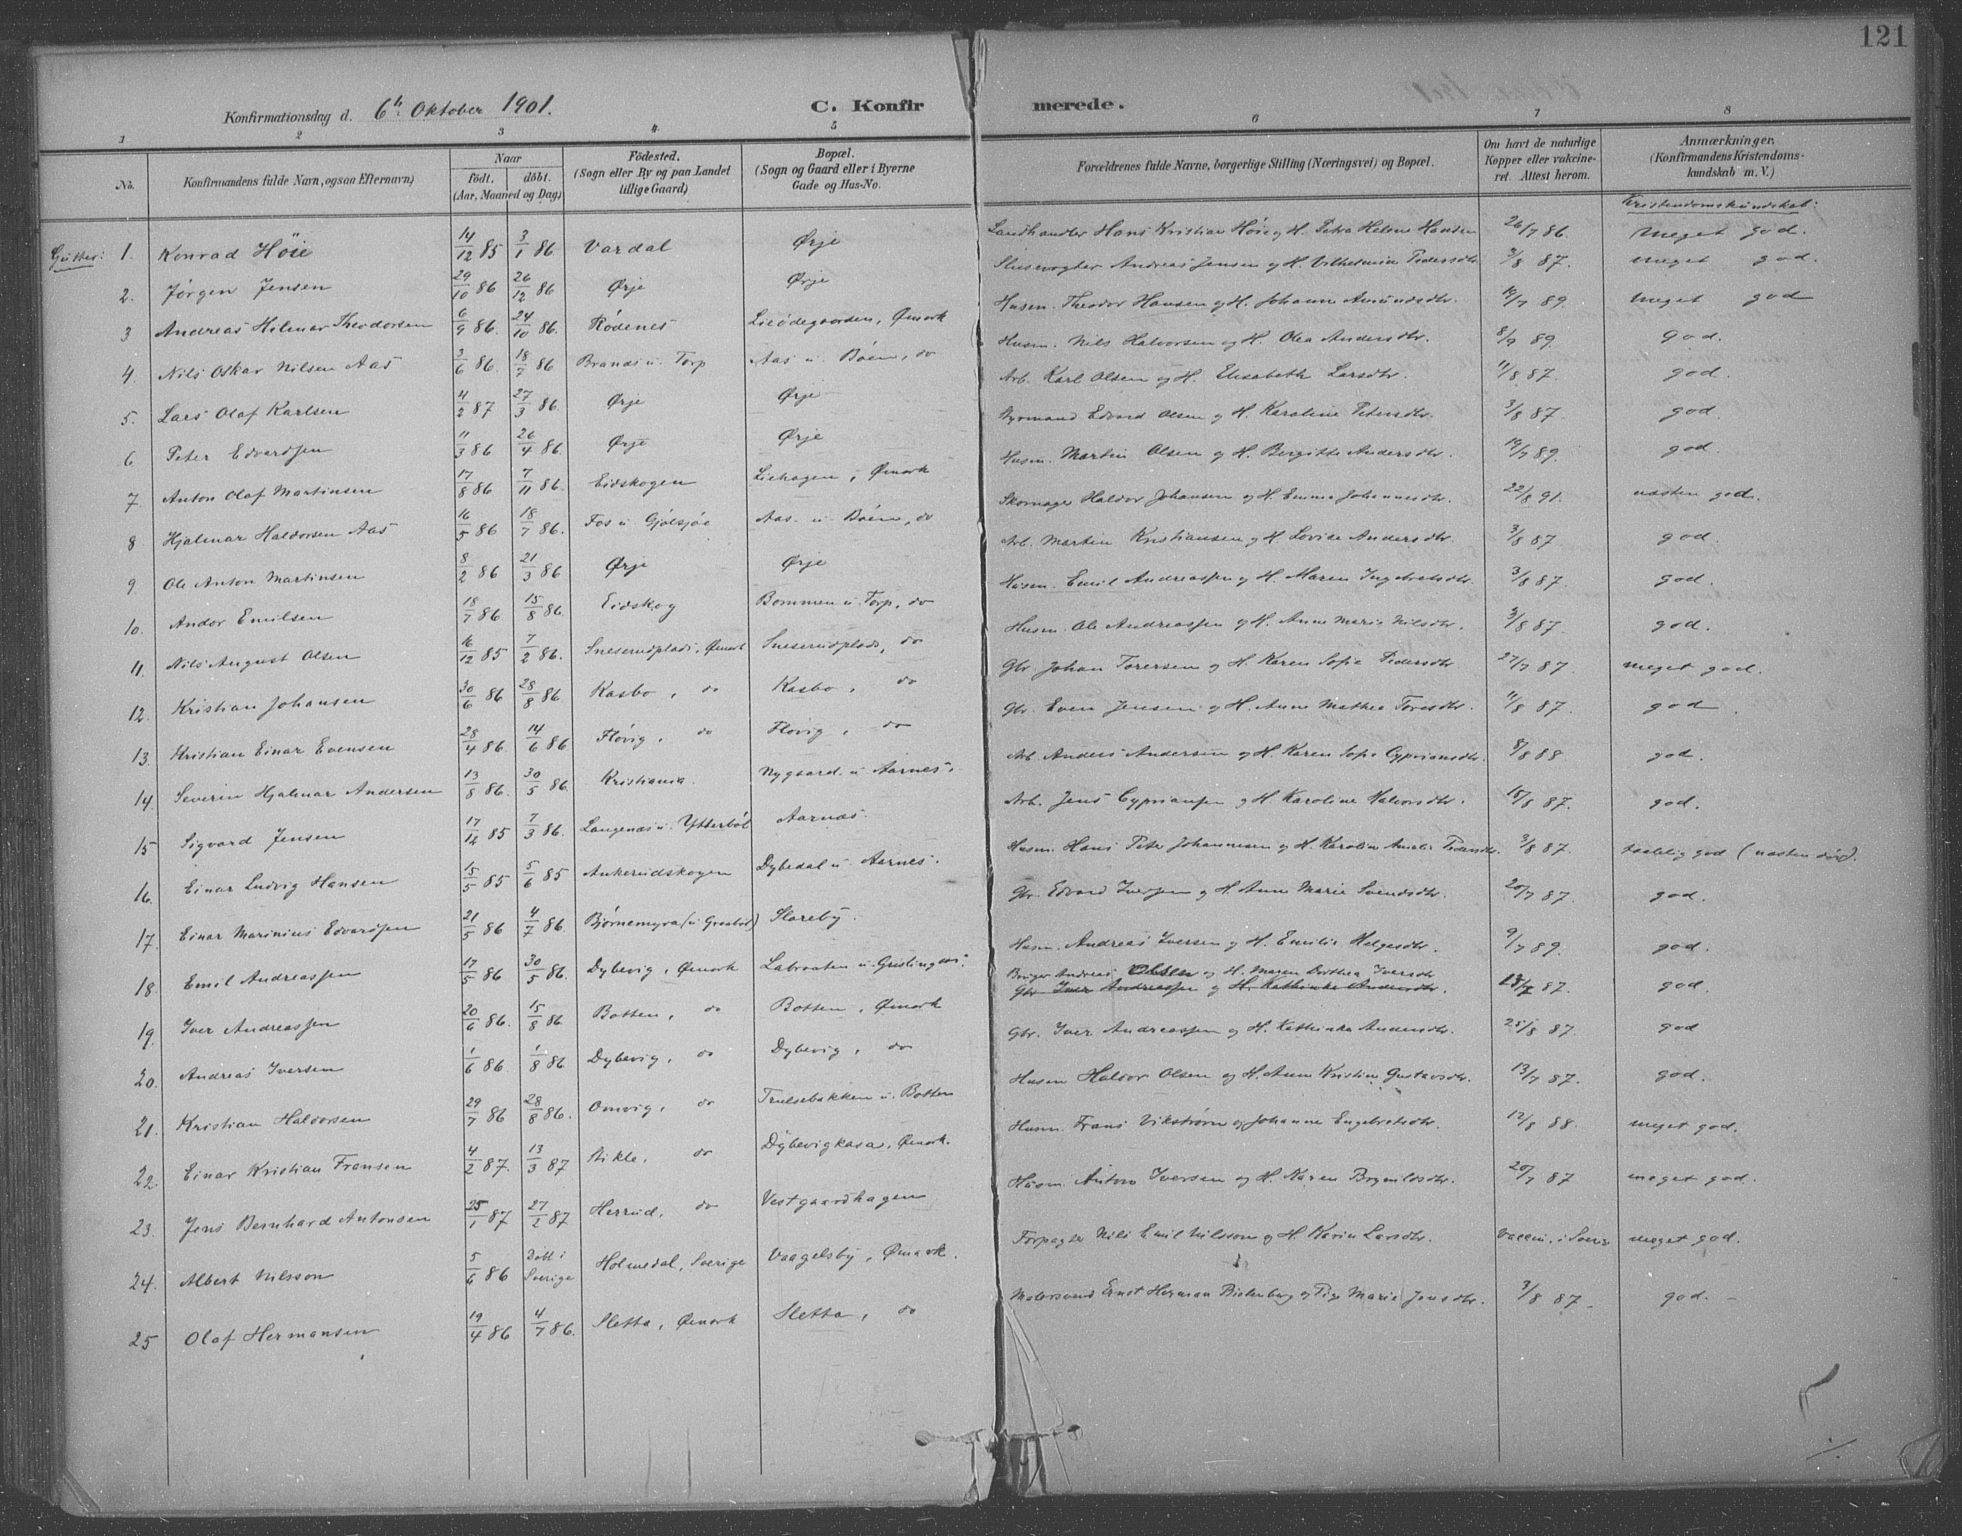 121
Konfirmationsdag d. 6te Oktober 1901. C. Konfirmerede.
1 2 3 4 5 6 7 8
No. Konfirmandens fulde Navn, ogsaa Efternavn) Naar födt. döbt. (Aar, Maaned og Dag) Födested. (Sogn eller By og paa Landet tillige Gaard) Bopæl. (Sogn og Gaard eller i Byerne Gade og Hus-No. Forældrenes fulde Navne, borgerlige Stilling (Næringsvei) og Bopæl. Om havt de naturlige Kopper eller vakcineret. Attest herom. Anmærkninger. (Konfirmandens Kristendomskundskab m. V.)
Kristendomskundskab:
Gutter: 1. Konrad Höie 14/12 85 3/1 86 Vardal Ørje Landhandler Hans Kristian Höie og H. Petra Helene Hansen 26/7 86. meget god.
2. Jørgen Jensen 29/10 86 26/12 86 Ørje Ørje Slusevogter Andreas Jensen og H. Vilhelmine Pedersdtr. 3/8 87. meget god.
3 Andreas Hilmar Theodorsen 6/9 86. 24/10 86. Rödenes Liödegaarden, Ømark Husm. Theodor Hansen og H. Johanne Amundsdtr. 19/7 89. meget god
4. Nils Oskar Nilsen Aas 3/6 86. 18/7 86 Brandsu. Torp Aas u. Böen, do Husm. Nils Halvorsen og H. Olea Andersdtr. 8/7 89. god.
5. Lars Olaf Karlsen 4/2 87 27/3 86. Ørje Ørje Arb. Karl Olsen og H. Elisabeth Larsdtr. 11/8 87. god.
6 Peter Edvardsen 11/3 86 26/4 86. Ørje Ørje Myrmand Edvard Olsen og H. Karoline Petersdtr. 3/8 87. god.
7. Anton Olaf Martinsen 17/8 86 7/11 86. Eidskogen Liehagen, Ømark Husm. Martin Olsen og H. Bergitte Andersdtr. 19/7 89. god.
8 Hjalmar Haldorsen Aas 16/5 86 18/7 86. Fos u. Gjølsjøe Aas u. Böen, do Skomager Haldor Johansen og H. Emma Johannesdtr. 22/8 91. næsten god.
9 Ole Anton Martinsen 8/2 86 21/3 86 Ørje Ørje Arb. Martin Kristiansen og H. Lovise Andersdtr. 3/8 87. god.
10. Andor Emilsen 18/7 86. 15/8 86. Eidskog Bommen u. Torp, do Husm. Emil Andreassen og H. Maren Ingebretsdtr. 3/8 87. god.
11. Nils August Olsen 16/12 85 7/2 86. Sneserudplads, Ømark Sneserudplads, do Husm. Ole Andreassen og H. Anne Marie Nilsdtr. 3/8 87. god.
12. Kristian Johansen 30/6 86 28/8 86. Kasbo, do Kasbo, do Gbr. Johan Torersen og H. Karen Sofie Pedersdtr 27/7 87. meget god.
13. Kristian Einar Evensen 28/4 86. 14/6 86 Flövig, do Flövig, do Gbr. Even Jensen og H. Anne Mathea Toresdtr. 11/8 87. god.
14. Severin Hjalmar Andersen 13/8 86. 30/5 86. Kristiania. Nygaard u Aarnes. Arb. Anders Andersen og H. Karen Sofie Cypriansdtr. 8/8 88 god.
15 Sigvard Jensen 17/12 85 7/3 86. Langenæs u. Ytterböl Aarnæs. Arb. Jens Cypriansen og H. Karoline Halvorsdtr. 15/8 87. god.
16. Einar Ludvig Hansen 15/5 85 5/6 85 Ankerudskogen Dybedal u. Aarnes. Husm. Hans Peter Johannesen og H. Karoline Amalie Pedersdtr. 3/8 87. taalelig god (næsten död).
17. Einar Marinius Edvardsen 21/5 86 4/7 86. Björnemyra (u Graaböl) Sloreby. Gbr. Edvard Iversen og H. Anne Marie Svendsdtr. 20/7 87. god.
18. Emil Andreassen 17/5 86 30/5 86. Dybevig, Ømark Labraaten u. Gislingen. Husm. Andreas Iversen og H. Emilie Helgesdtr. 9/7 89. god.
Bruger Andreas Olsen og H. Maren Dorthea Iversdtr
19. Iver Andreassen 20/6 86. 15/8 86 Botten, do Botten, Ømark Gbr Iver Andreassen og H. Kathinka Andersdtr. 13/7 87. god.
20. Andreas Iversen 1/6 86. 1/8 86. Dybevig, do Dybevig, do Gbr. Iver Andreassen og H. Kathinka Andersdtr. 25/8 87. god
21. Kristian Haldorsen 29/7 86 28/8 86. Omvig, do Trulsebakken u. Botten Husm Haldor Olsen og H. Anne Kristine Gustavsdtr. 13/7 87. god.
22. Einar Kristian Fransen 4/2 87. 13/3 87 Aikle, do Dybevigkasa, Ømark. Husm. Frans Vikström og Johanne Engebretsdtr. 12/8 88. meget god.
23. Jens Bernhard Antonsen 25/1 87 27/2 87 Herrud, do Vestgaardhagen Husm. Anton Iversen og H. Karen Brynildsdtr. 20/7 87 meget god.
24. Albert Nilsson 5/6 86 Döbt i Sverige Holmedal, Sverige Vaagelsby, Ømark. Forpagter Nils Emil Nilsson og H. Karin Larsdtr. Vaccin. i Sverig meget god.
25 Olaf Hermansen 19/4 86 4/7 86. Sletta, Ømark Sletta, do Molersvend Ernst Herman Bickenberg og Pige Marie Jensdtr. 3/8 87. god.